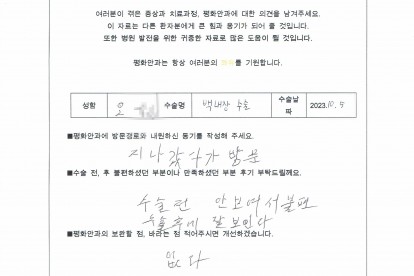 여러분이 겪은 증상과 치료과정, 평화안과에 대한 의견을 남겨주세요.
이 자료는 다른 환자분에게 큰 힘과 용기가 되어 줄 것입니다.
또한 병원 발전을 위한 귀중한 자료로 많은 도움이 될 것입니다.
평화안과는 항상 여러분의 을 기원합니다.
성함 오 수술명 백내장 수술 수술날짜 2023.10.5
■평화안과에 방문경로와 내원하신 동기를 작성해 주세요.
지나갔다가 방문
■수술 전, 후 불편하셨던 부분이나 만족하셨던 부분 후기 부탁드릴께요.
수술전 안보여서불편
수술후에 잘 보인다
■평화안과의 보완할 점, 바라는 점 적어주시면 개선하겠습니다.
없다